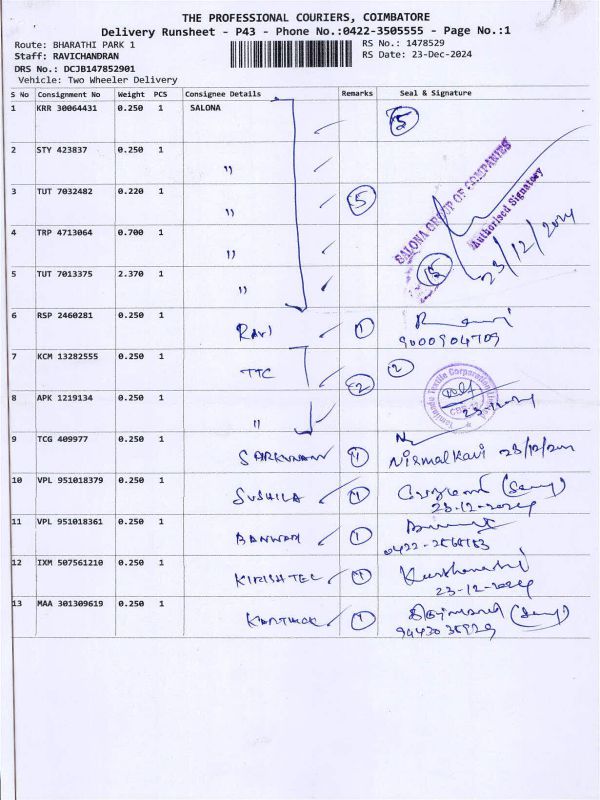 THE PROFESSIONAL COURIERS, COIMBATORE
Delivery Runsheet - P43 - Phone No.:0422-3505555 - Page No.:1
Route: BHARATHI PARK 1
RS No.: 1478529
Staff: RAVICHANDRAN
RS Date: 23-Dec-2024
DRS No.: DCJB147852901
Vehicle: Two Wheeler Delivery
S No Consignment No Weight PCS Consignee Details Remarks Seal & Signature
1 KRR 30064431 0.250 1 SALONA 5
2 STY 423837 0.250 1 "
3 TUT 7032482 0.220 1 " 5
SALONA GROUP OF COMPANIES
Authorised Signatory
4 TRP 4713064 0.700 1 "
23/12/2024
5 TUT 7013375 2.370 1 "
6 RSP 2460281 0.250 1 RAVI 1
9000904709
7 KCM 13282555 0.250 1 TTC 2 2
8 APK 1219134 0.250 1 "
23-12-2024
9 TCG 409977 0.250 1 1 Nirmal Kavi
10 VPL 951018379 0.250 1 SUSHILA 1
23-12-2024
11 VPL 951018361 0.250 1 1
12 IXM 507561210 0.250 1 1
23-12-2024
13 MAA 301309619 0.250 1 KARTHICK 1